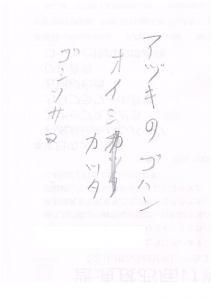 アヅキのゴハン
オイシ
カツタ
ゴンソサマ